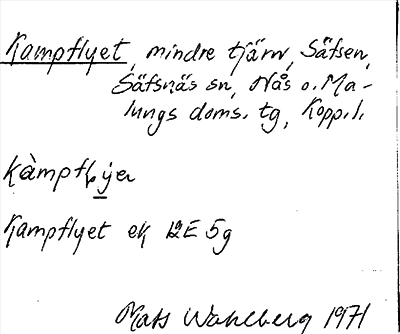 Kampflyet, mindre tjärn, Säfsen,
Säfsnäs sn, Nås o. Ma-
lungs doms. tg, Kopp. l.
Kampflyet ek 12E 5g
Mats Wahlberg 1971